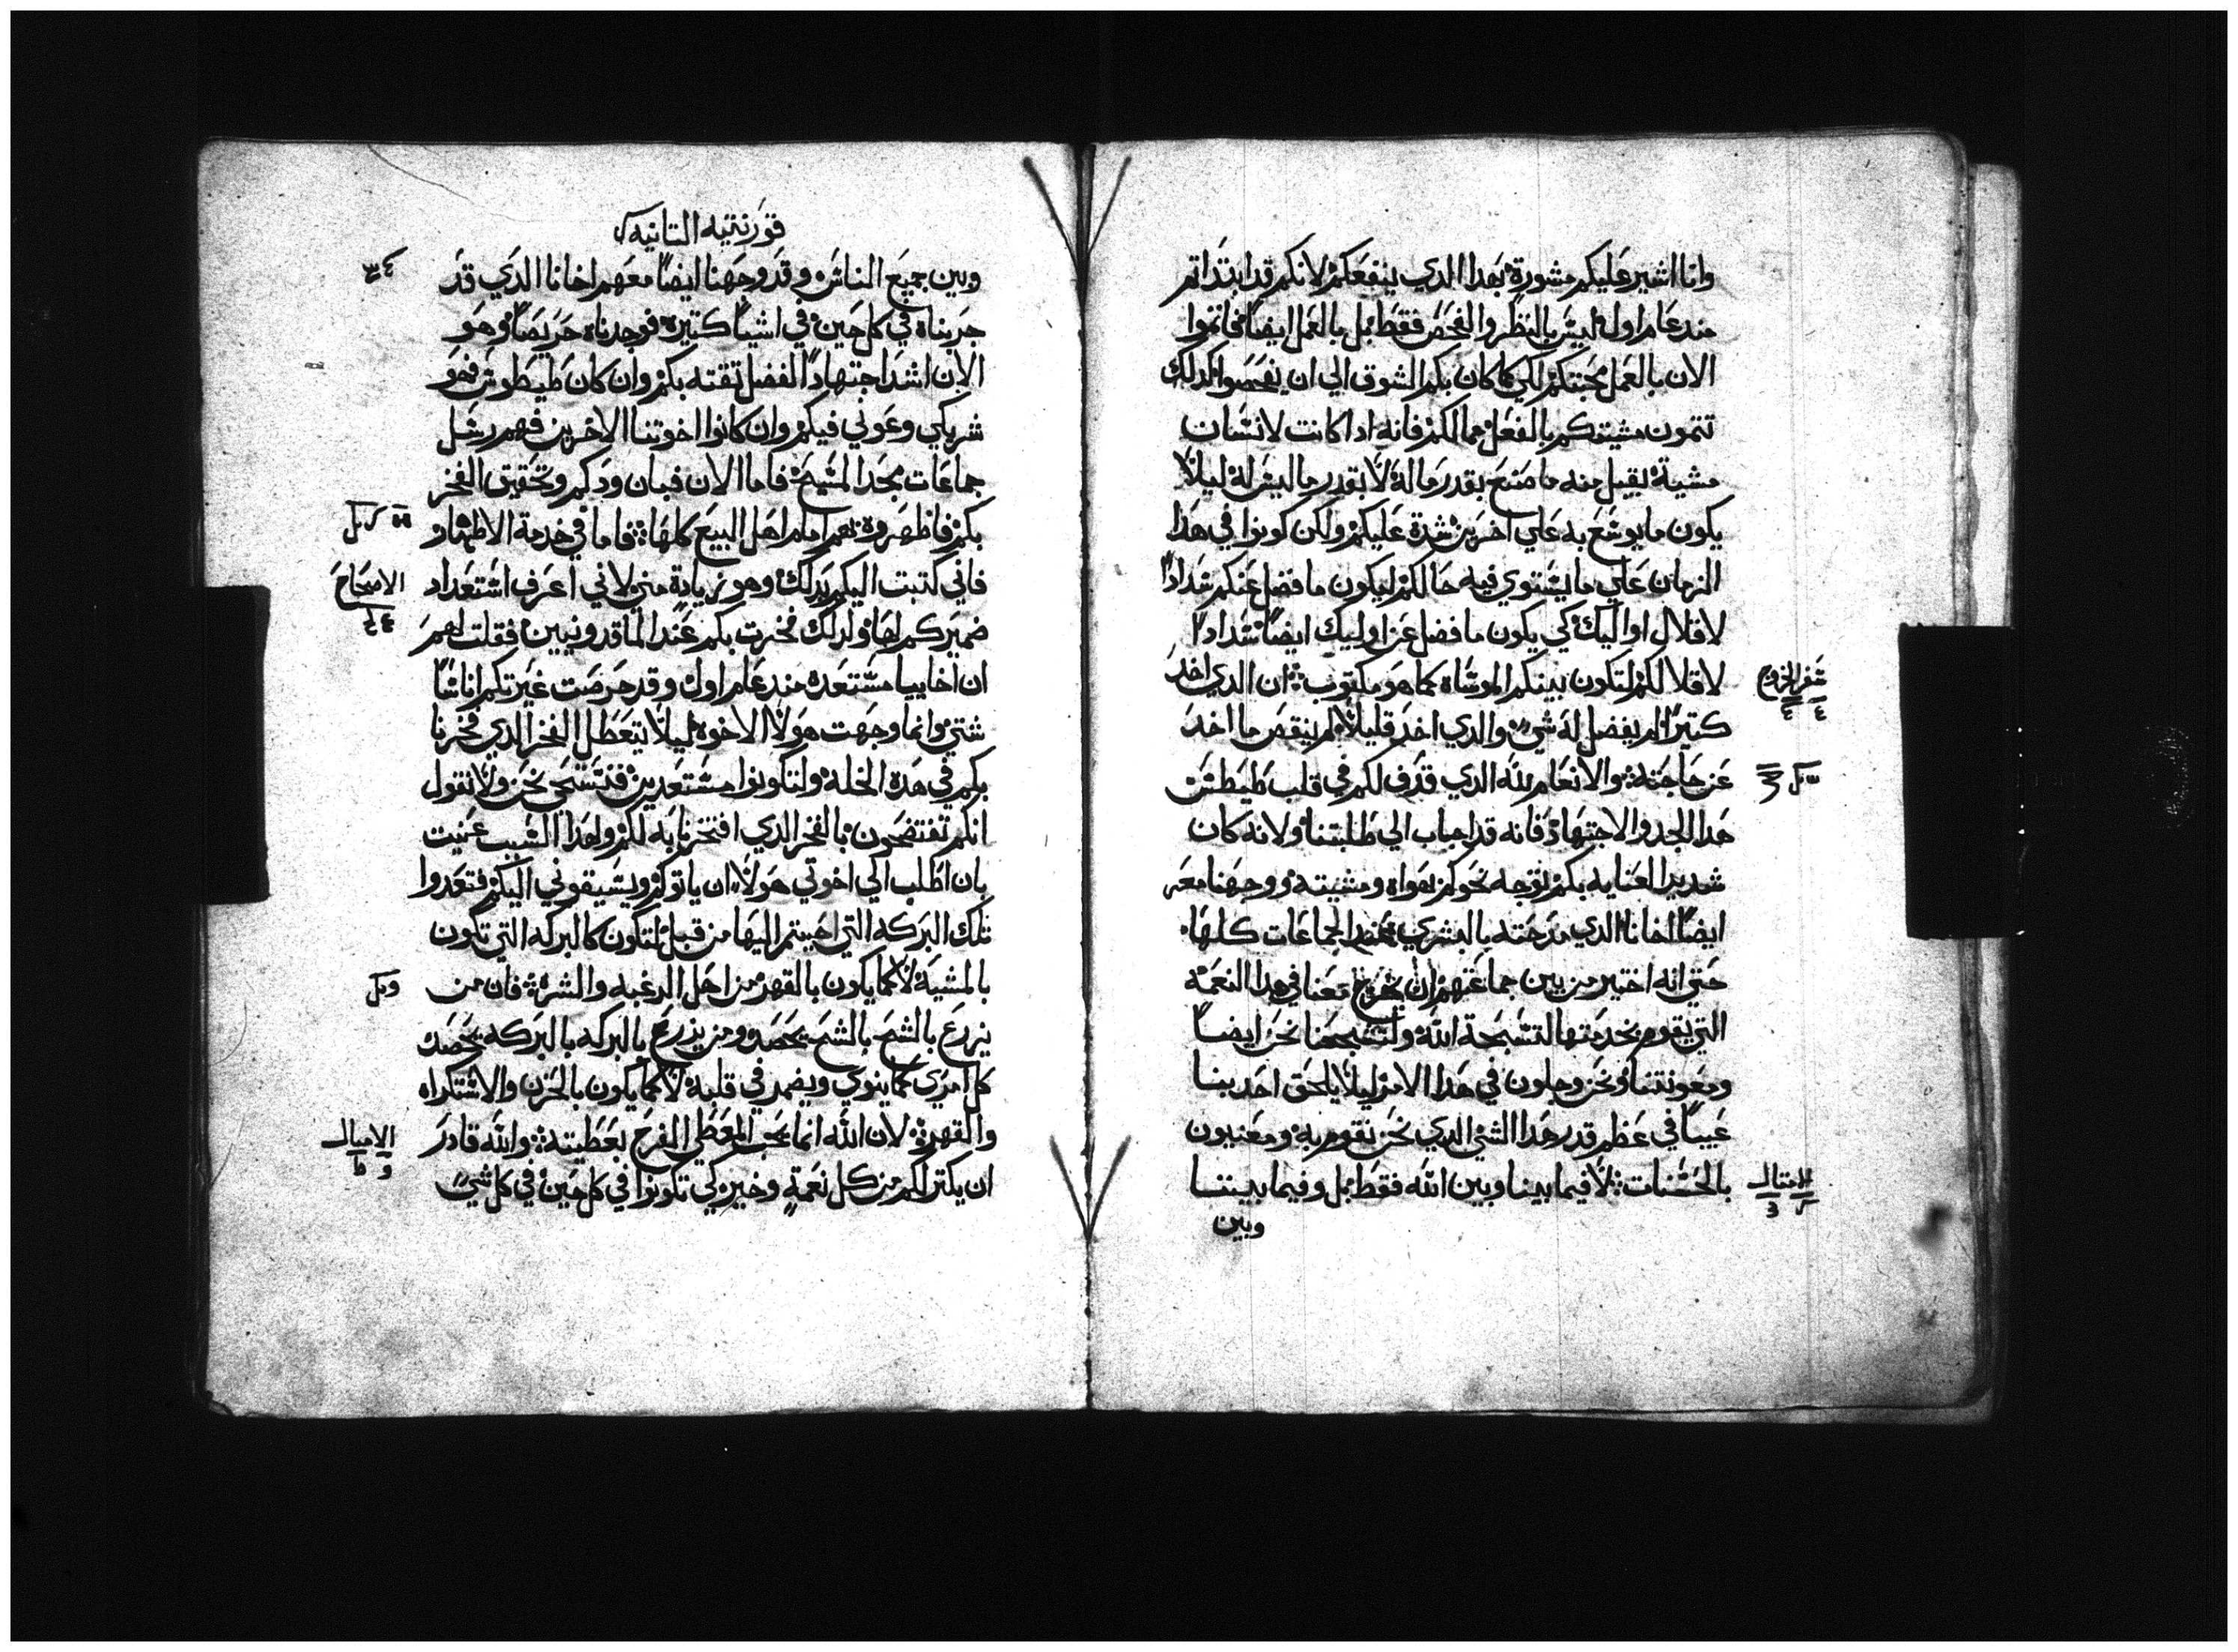 وانا اشير عليكم مشورة بهدا الدي ينفعكم لانكم قد ابتداتم
مند عام اول ليس بالنظر والفحص فقط بل بالعمل ايضًا فاتموا
الان بالعمل محبتكم لكي كما كان بكم الشوق الي ان تفحصوا كدلك
تتمون مشيتكم بالفعل مما لكم فانه ادا كانت لانسان
مشية يقبل منه ما صنع بقدر ما له لا بقدر ما ليس له ليلا
يكون ما يوسع به علي اخرين شدة عليكم ولكن كونوا في هدا
الزمان علي ما يستوي فيه حالكم ليكون ما فضل عنكم سدادًا
لاقلال اوليك كي يكون ما فضل عن اوليك ايضًا سدادًا
لاقلالكم لتكون بينكم الموساه كما هو مكتوب ان الدي اخد
سفر الخروج
كتيرًا لم يفضل له شي والدي اخد قليلًا لم ينقص ما اخد
عن حاجته والانعام لله الدي قدف لكم في قلب طيطس
هدا الجد والاجتهاد فانه قد اجاب الي طلبتنا ولانه كان
شديد العنايه بكم توجه نحوكم بهواه ومشيته ووجهنا معه
ايضًا اخانا الدي مدحته بالبشري عند الجماعات كلها
حتي انه اختير من بين جماعتهم ان يخرج معنا في هدا النعمه
التي نقوم بخدمتها لتسبحة الله ولتشجعنا نحن ايضًا
ومعونتنا ونحن وجلون في هدا الامر ليلا يلحق احد بنا
عيبًا في عظم قدر هدا الشي الدي نحن نقوم به ومعنيون
بالحسنات لا فيما بيننا وبين الله فقط بل وفيما بيننا
الامتال
وبين
قورنتيه التانيه
وبين جميع الناس وقد وجهنا ايضًا معهم اخانا الدي قد
جربناه في كل حين في اشيا كتيره فوجدناه حريصًا وهو
الان اشد اجتهادًا لفضل تقته بكم وان كان طيطوس فهو
شريكي وعوني فيكم وان كانوا اخوتنا الاخرين فهم رسل
جماعات مجد المسيح فاما الان فبان ودكم وتحقيق الفخر
بكم فاظهروه لهم امام اهل البيع كلها فاما في خدمة الاطهار
فاني كتبت اليكم بدلك وهو زيادة مني لاني اعرف استعداد
الاصحاح
ضميركم لها ولدلك فخرت بكم عند الماقدونيين فقلت لهم
ان اخاييا مستعده مند عام اول وقد حرصت غيرتكم اناسًا
شتي وانما وجهت هولا الاخوه ليلا يتعطل الفخر الدي فخرنا
بكم في هده الخله ولتكونوا مستعدين فنستحي نحن ولا نقول
انكم تفتضحون بالفخر الدي افتخرنا به لكم ولهدا السبب عنيت
بان اطلب الي اخوتي هولا ان ياتوكم ويسبقوني اليكم فتعدوا
تلك البركه التي اجبتم اليها من قبل لتكون كالبركه التي تكون
بالمشية لا كما يكون بالقهر من اهل الرغبه والشره فان من
يزرع بالشح بالشح يحصد ومن يزرع بالبركه بالبركه يحصد
كل امري كما ينوي ويضمر في قلبه لا كما يكون بالحزن والاستكراه
والقهر لان الله انما يحب المعطي الفرح بعطيته والله قادر
الامتال
ان يكتر لكم من كل نعمة وخير كي تكونوا في كل حين في كل شي